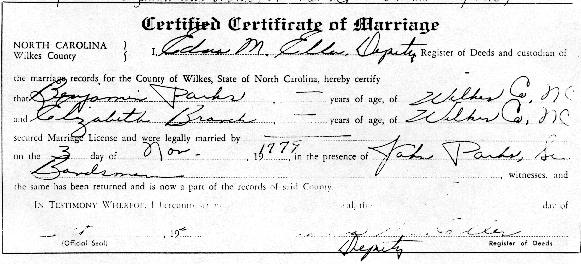 Certified Certificate of Marriage
NORTH CAROLINA } I, Edna M. Eller, Deputy Register of Deeds and custodian of
Wilkes County }
the marriage records for the County of Wilkes, State of North Carolina, hereby certify
that Benjamin Parks — years of age, of Wilkes Co, NC
and Elizabeth Branch — years of age, of Wilkes Co, NC
secured Marriage License and were legally married by —
on the 3 day of Nov. 1779, in the presence of John Parks, Sr.
Bondsman witnesses, and
the same has been returned and is now a part of the records of said County.
IN TESTIMONY WHEREOF, I hereunto seal, the day of
19
(Official Seal) Deputy Register of Deeds